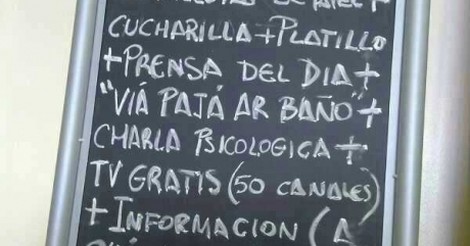 CUCHARILLA + PLATILLO
+ PRENSA DEL DIA +
"VIÁ PAJÁ AR BAÑO" +
CHARLA PSICOLOGICA +
TV GRATIS (50 CANALES)
+ INFORMACION (A